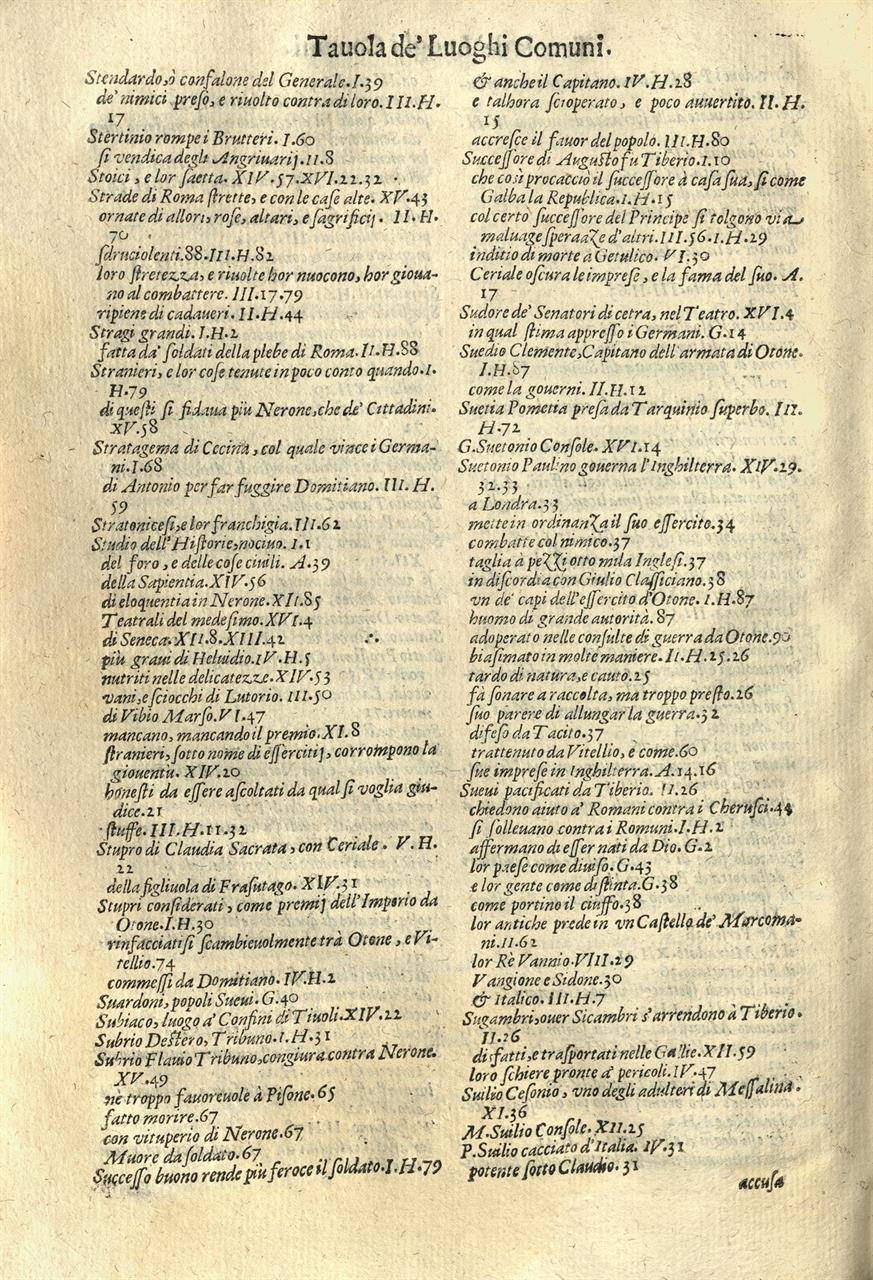 Tauola de' Luoghi Comuni.
Stendardo,ò confalone del Generale.I.39
de' nimici preso, e riuolto contra di loro. III.H.
17
Stertinio rompe i Brutteri. I.60
si vendica degli Angriuarij.II.8
Stoici, e lor saetta. XIV.57.XVI.22.32
Strade di Roma strette, e con le case alte. XV.43
ornate di allori, rose, altari, e sagrificij. II.H.
70
sdruciolenti.88.III.H.82
loro stretezza, e riuolte hor nuocono, hor gioua-
no al combattere. III.17.79
ripiene di cadaueri. II.H.44
Stragi grandi. I.H.2
fatta da' soldati della plebe di Roma. II.H.88
Stranieri, e lor cose tenute in poco conto quando.I.
H.79
di questi si fidaua più Nerone, che de' Cittadini.
XV.58
Stratagema di Cecina, col quale vince i Germa-
ni.I.68
di Antonio per far fuggire Domitiano. III. H.
59
Stratonicesi, e lor franchigia.III.62
Studio dell'Historie, nociuo. I.1
del foro, e delle cose ciuili. A.39
della Sapientia. XIV.56
di eloquentia in Nerone. XII.85
Teatrali del medesimo. XVI.4
di Seneca. XII.8.XIII.42
più graui di Heluidio.IV.H.5
nutriti nelle delicatezze.XIV.53
vani, e sciocchi di Lutorio. III.50
di Vibio Marso.VI.47
mancano, mancando il premio. XI.8
stranieri, sotto nome di essercitij, corrompono la
giouentù. XIV.20
honesti da essere ascoltati da qual si voglia giu-
dice.21
stuffe. III.H.11.32
Stupro di Claudia Sacrata, con Ceriale. V. H.
22
della figliuola di Frasutago. XIV.31
Stupri considerati, come premij dell'Imperio da
Otone.I.H.30
rinfacciatisi scambieuolmente trà Otone, e Vi-
tellio.74
commessi da Domitiano. IV.H.2
Suardoni, popoli Sueui. G.40
Subiaco, luogo a' Confini di Tiuoli.XIV.22
Subrio Destero, Tribuno. I.H.31
Subrio Flauio Tribuno, congiura contra Nerone.
XV.49
nè troppo fauoreuole à Pisone.65
fatto morire.67
con vituperio di Nerone.67
Muore da soldato.67
Successo buono rende più feroce il soldato.I.H.79
& anche il Capitano. IV.H.28
e talhora scioperato, e poco auuertito. II. H.
15
accresce il fauor del popolo. III.H.80
Successore di Augusto fu Tiberio.I.10
che così procacciò il successore à casa sua, sì come
Galba la Republica. I.H.15
col certo successore del Principe si tolgono via
maluage speraaze d'altri.III.56.I.H.29
inditio di morte à Getulico. VI.30
Ceriale oscura le imprese, e la fama del suo. A.
17
Sudore de' Senatori di cetra, nel Teatro. XVI.4
in qual stima appresso i Germani. G.14
Suedio Clemente, Capitano dell'armata di Otone.
I.H.87
come la gouerni. II.H.12
Suetia Pometia presa da Tarquinio superbo. III.
H.72
G.Suetonio Console. XVI.14
Suetonio Paulino gouerna l'Inghilterra. XIV.29.
32.33
a Londra.33
mette in ordinanza il suo essercito.34
combatte col nimico.37
taglia à pezzi otto mila Inglesi.37
in discordia con Giulio Classiciano.38
vn de' capi dell'essercito d'Otone. I.H.87
huomo di grande autorità. 87
adoperato nelle consulte di guerra da Otone.90
biasimato in molte maniere. II.H.25.26
tardo di natura, e cauto.25
fà sonare a raccolta, ma troppo presto.26
suo parere di allungar la guerra.32
difeso da Tacito.37
trattenuto da Vitellio, e come.60
sue imprese in Inghilterra. A.14.16
Sueui pacificati da Tiberio. II.26
chiedono aiuto a' Romani contra i Cherusci.44
si solleuano contra i Romuni.I.H.2
affermano di esser nati da Dio. G.2
lor paese come diuiso. G.43
e lor gente come distinta.G.38
come portino il ciuffo.38
lor antiche prede in vn Castello de' Marcoma-
ni.II.62
lor Rè Vannio.VIII.29
Vangione e Sidone.30
& Italico. III.H.7
Sugambri, ouer Sicambri s'arrendono à Tiberio.
II.26
disfatti, e trasportati nelle Gallie.XII.59
loro schiere pronte a' pericoli.IV.47
Suilio Cesonio, vno degli adulteri di Messalina.
XI.36
M.Suilio Console. XII.25
P.Suilio cacciato d'Italia. IV.31
potente sotto Claudio. 31
accusa